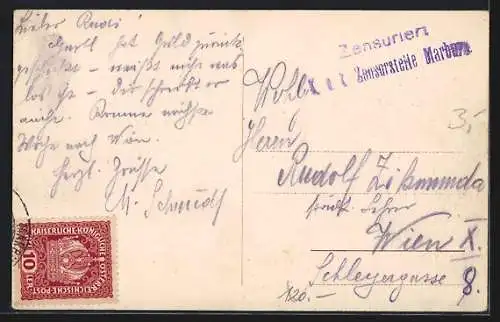 Lieber Rudi!
Gartl hat Geld zurück
geschickt – weißt nicht was
los ist – Dir schreibt er
auch. Komme nächste
Woche nach Wien.
Herzl. Grüsse
M. Schmidt
Zensuriert
k. u. k. Zensurstelle Marburg
Wohlg.
Herrn
Rudolf Zikmunda
städt. Lehrer
Wien X.
Schleyergasse 8.
KAISERLICHE KÖNIGLICHE
ÖSTERREICHISCHE POST
10
120.–